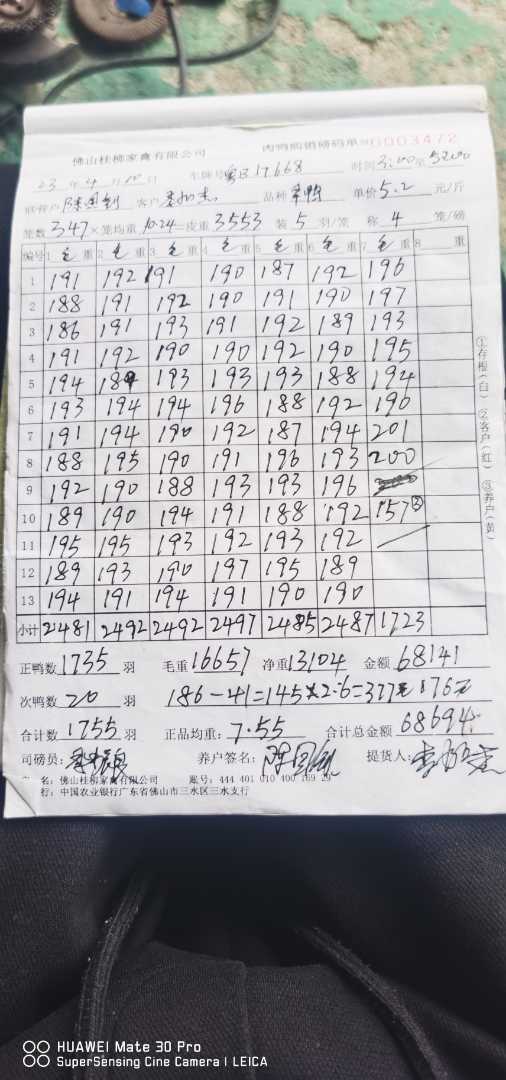 佛山桂柳家禽有限公司 肉鸭购销磅码单 №0003472
23年4月10日 车牌号 粤E17668 时间3:00至5:00
客户 品种 单价5.2元/斤
笼数347×笼均重10.24=皮重3553 装5羽/笼 称4笼/磅
编号 1 毛重 2 毛重 3 毛重 4 毛重 5 毛重 6 毛重 7 毛重 8 重
1 191 192 191 190 187 192 196
2 188 191 192 190 191 190 197
3 186 191 193 191 192 189 193
4 191 192 190 190 192 190 195
5 194 189 193 193 193 188 194
6 193 194 194 196 188 192 196
7 191 194 190 192 187 194 201
8 188 195 190 191 196 193 200
9 192 190 188 193 193 196
10 189 190 194 191 188 192 157③
11 195 195 193 192 193 192
12 189 193 190 197 195 189
13 194 191 194 191 190 190
小计 2481 2492 2492 2497 2485 2487 1723
①存根(白) ②客户(红) ③养户(黄)
正鸭数1735羽 毛重16657 净重13104 金额68141
次鸭数20羽 186-41=145×2.6=377元 176元
合计数1755羽 正品均重:7.55 合计总金额68694
司磅员: 养户签名: 提货人:
名:佛山桂柳家禽有限公司 账号:444 401 010 400 169 29
行:中国农业银行广东省佛山市三水区三水支行
HUAWEI Mate 30 Pro
SuperSensing Cine Camera | LEICA